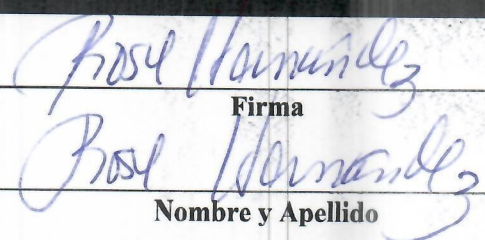 Rose Hernández
Firma
Rose Hernández
Nombre y Apellido